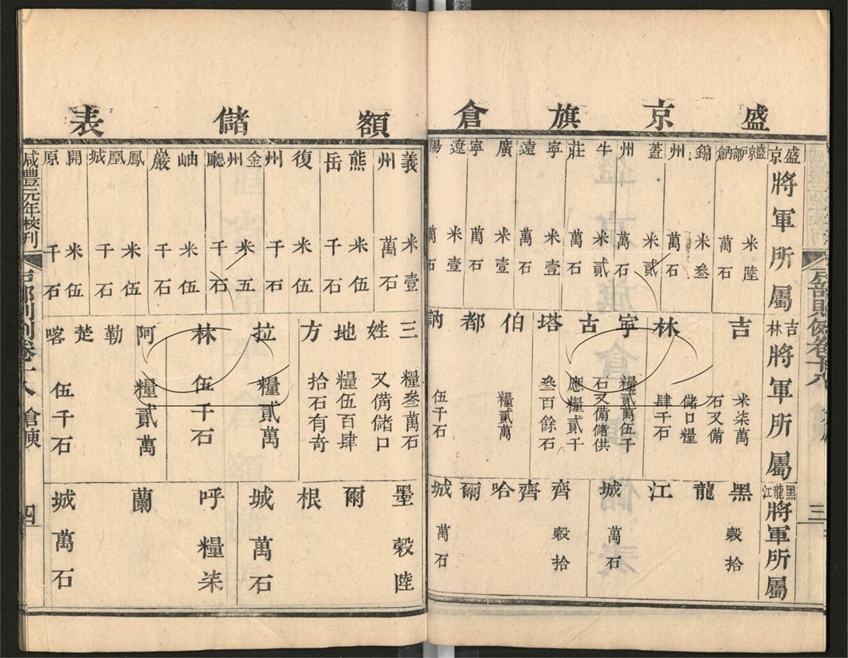 盛京旗倉
盛京將軍所屬
盛京
米陸萬石
錦州
米叄萬石
蓋州
米貳萬石
牛莊
米貳萬石
寧遠
米壹萬石
廣寧
米壹萬石
遼陽
米壹萬石
吉林將軍所屬
吉林
米柒萬石又備儲口糧肆千石
寧古塔
糧貳萬伍千石又備儲供應糧貳千叄百餘石
伯都訥
糧貳萬伍千石
黑龍江將軍所屬
黑龍江城
穀拾萬石
齊齊哈爾城
穀拾萬石
戶部則例卷十八
三
額儲表
義州
米壹萬石
熊岳
米伍千石
復州
米伍千石
金州廳
米五千石
岫巖
米伍千石
鳳凰城
米伍千石
開原
米伍千石
三姓地方
糧叄萬石又備儲口糧伍百肆拾石有奇
拉林
糧貳萬伍千石
阿勒楚喀
糧貳萬伍千石
墨爾根城
穀陸萬石
呼蘭城
糧柒萬石
咸豐元年校刊
戶部則例卷十八
倉庾
四